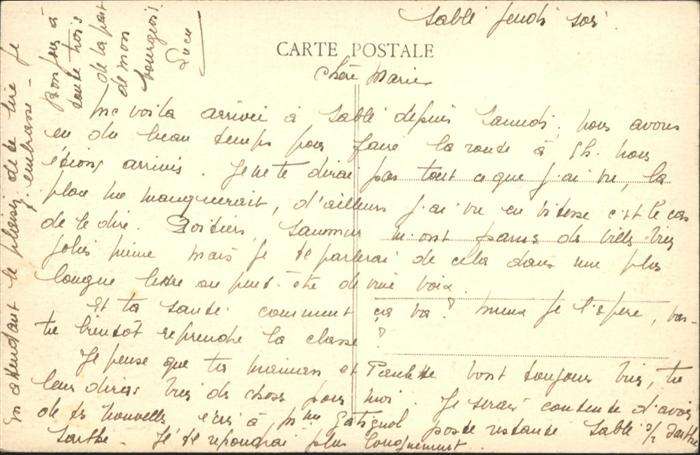 Sablé jeudi soir
CARTE POSTALE
Chère Marie
Me voilà arrivée à Sablé depuis samedi. nous avons
eu du beau temps pour faire la route à 5h. nous
étions arrivés. Je ne te dirai pas tout ce que j'ai vu, la
place me manquerait, d'ailleurs j'ai vu en vitesse c'est le cas
de le dire. Poitiers, Saumur m'ont parus des villes très
jolies même mais je te parlerai de cela dans une plus
longue lettre ou peut-être de vive voix.
Et ta santé comment ça va? mieux je l'espère, vas-
tu bientôt reprendre la classe?
Je pense que ta maman et Paulette vont toujours bien, tu
leur diras bien des choses pour moi. Je serais contente d'avoir
de tes nouvelles, écris à, Mme Gatignol poste restante Sablé s/ Sarthe
Sarthe. Je te répondrai plus longuement.
En attendant le plaisir de te lire je
t'embrasse.
Bonjour à
toute trois
de la part
de mon
bourgeois.